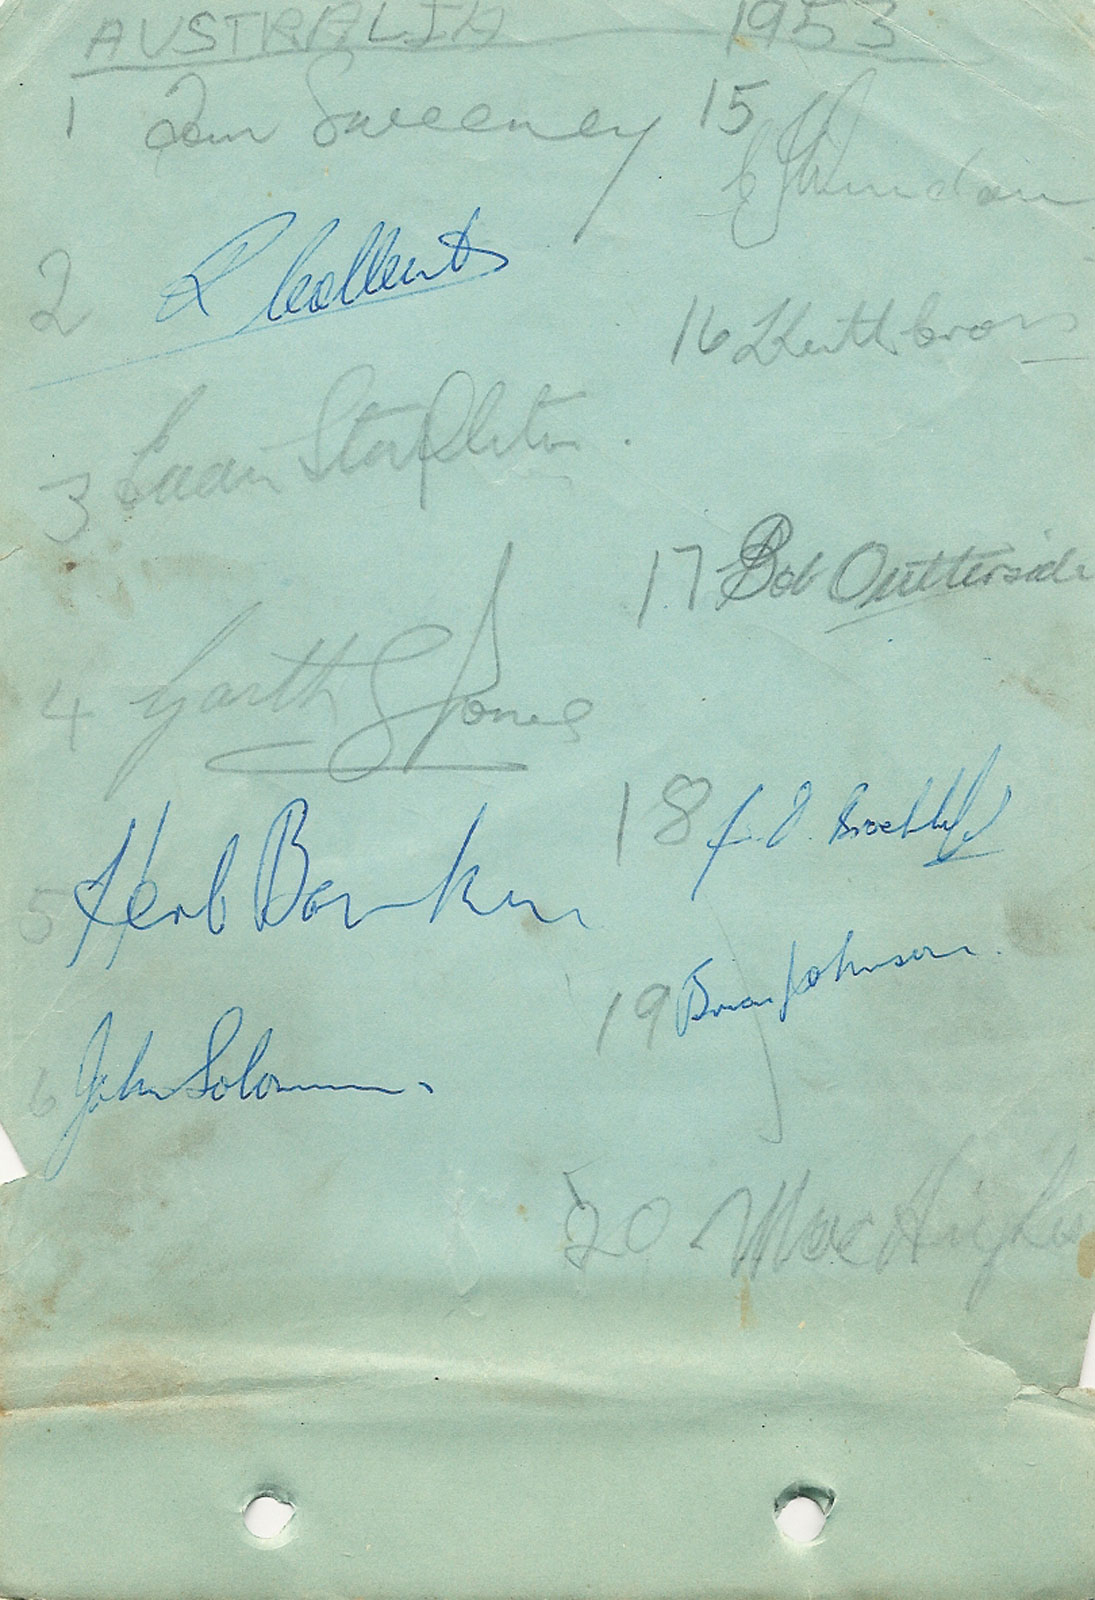 AUSTRALIA 1953
1 Tom Sweeney
2 R Colbert
3 Eddie Stapleton.
4 Garth S Jones
5 Herb Barker
6 John Solomon.
15
16 Keith Cross
17 Bob Outterside
18
19 Brian Johnson.
20 Mac Hughes